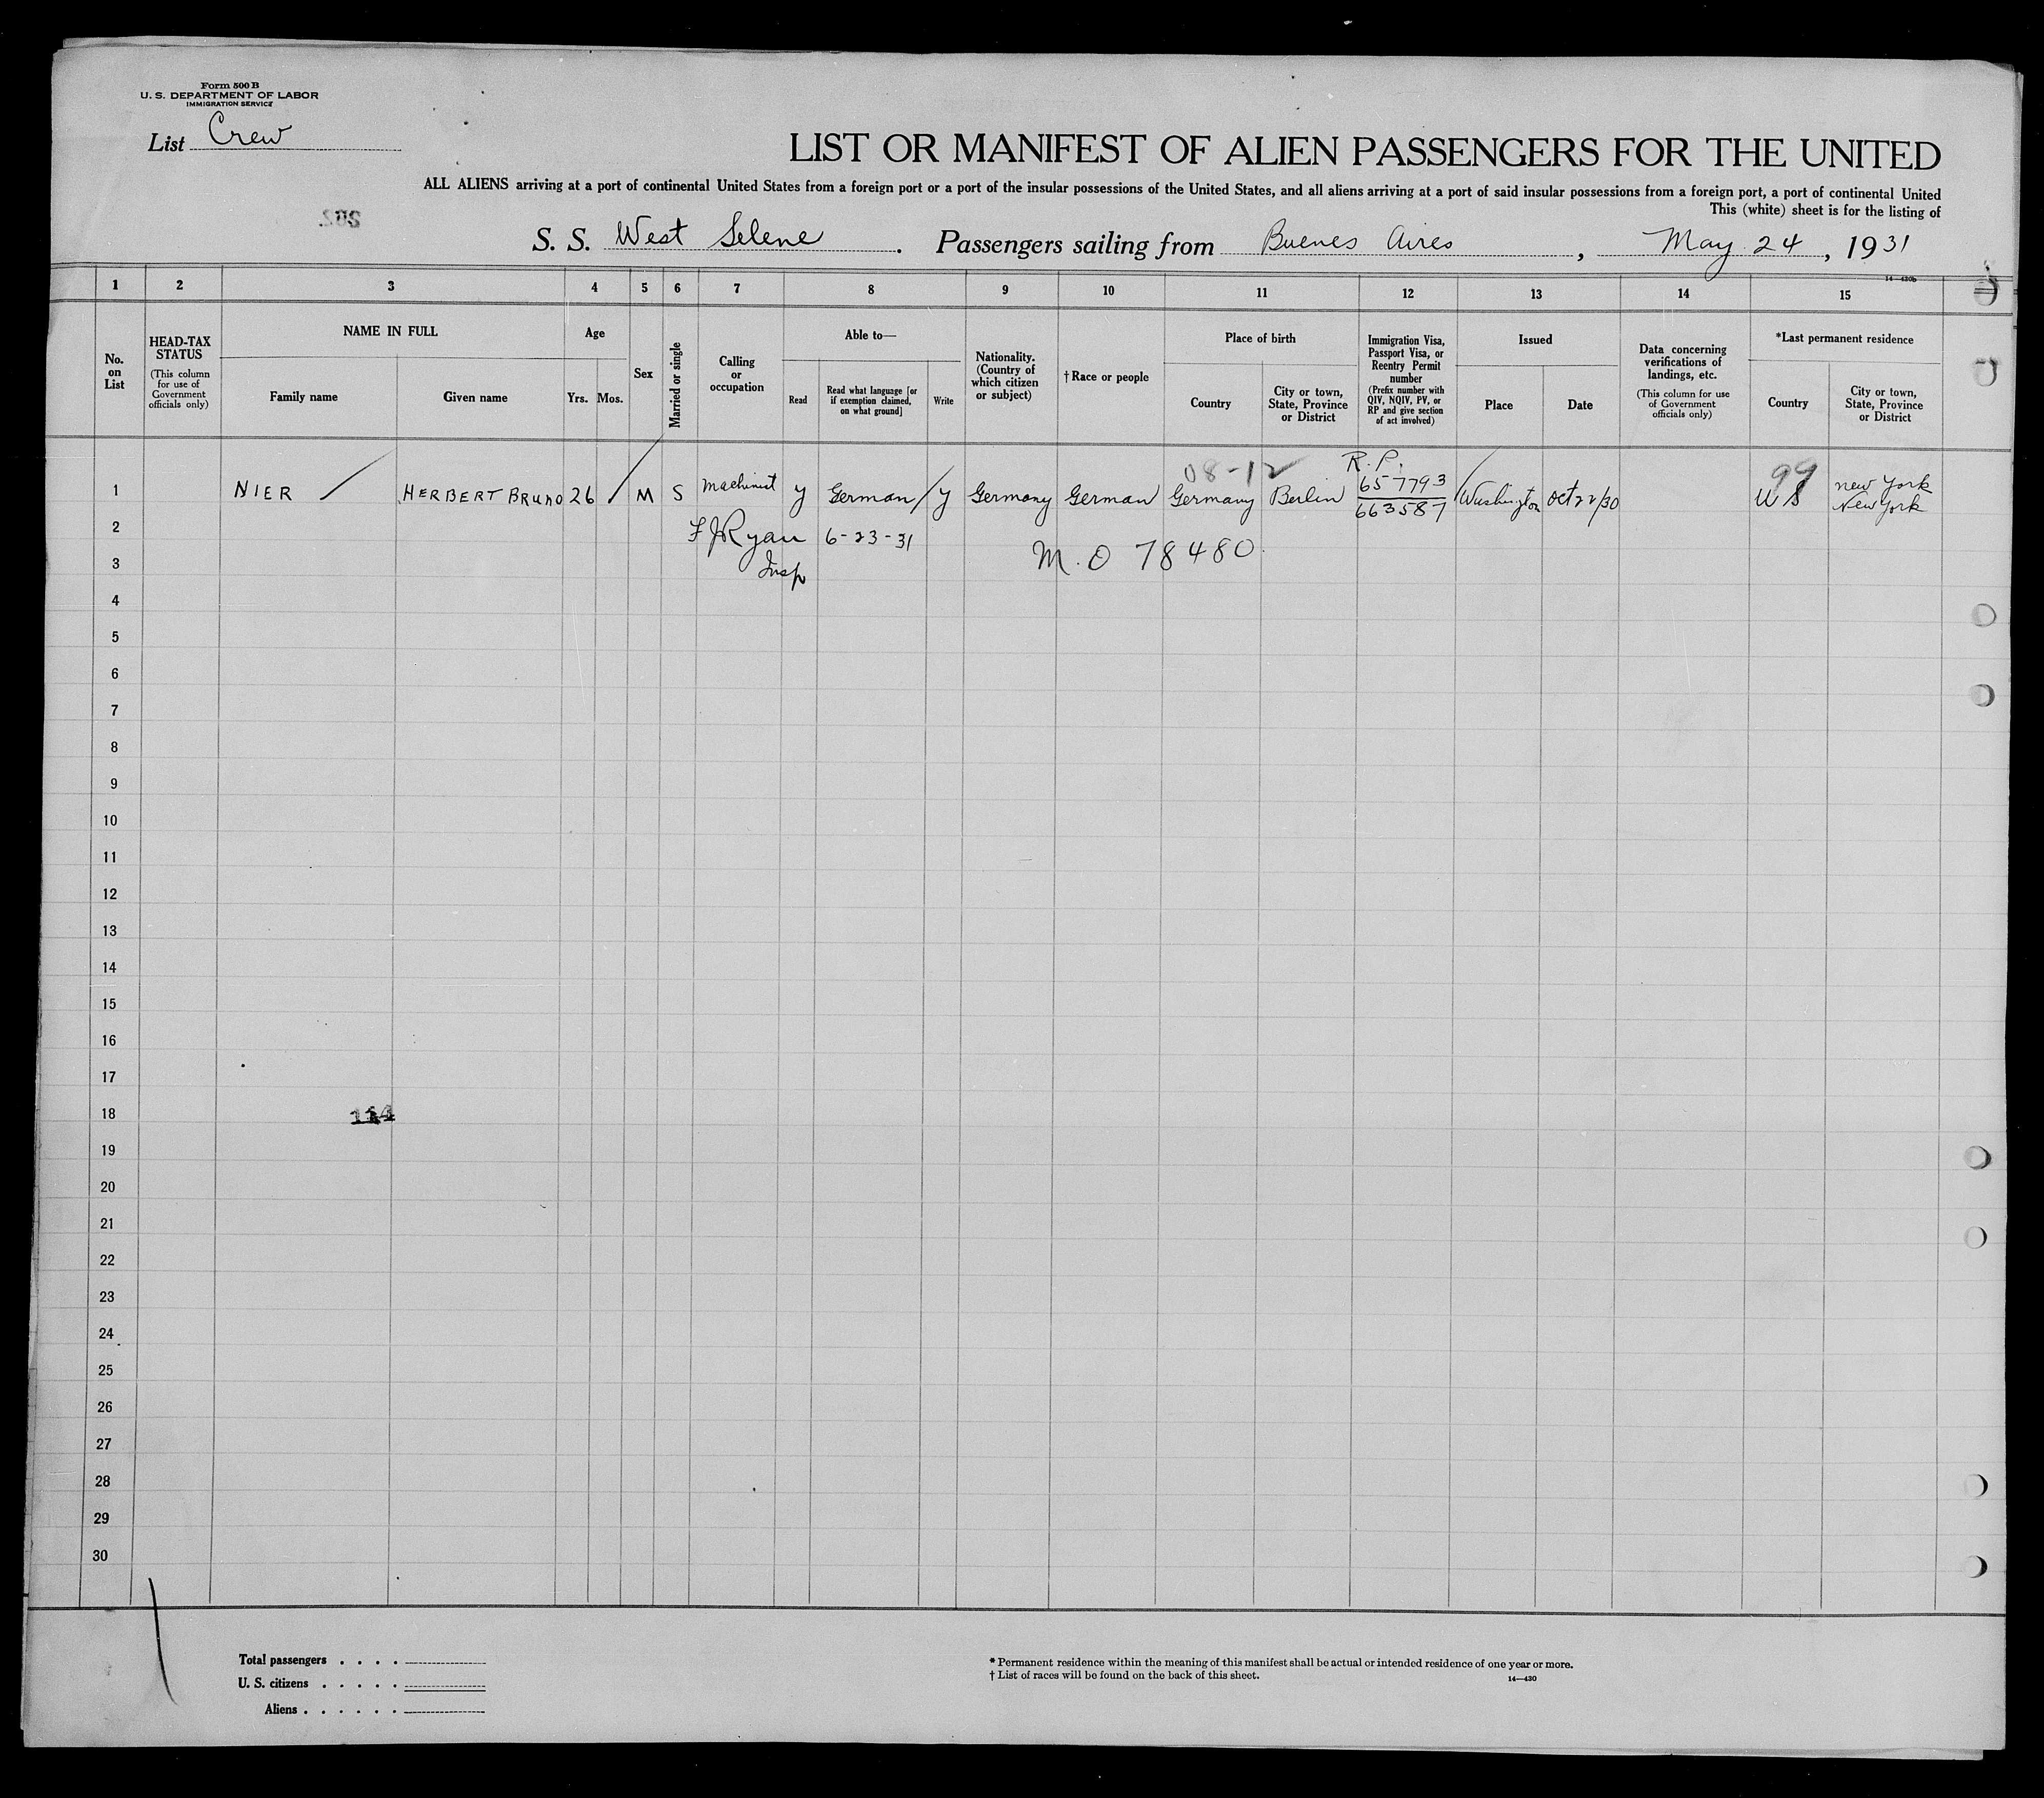 Form 500 B
U. S. DEPARTMENT OF LABOR
IMMIGRATION SERVICE
List Crew
LIST OR MANIFEST OF ALIEN PASSENGERS FOR THE UNITED
ALL ALIENS arriving at a port of continental United States from a foreign port or a port of the insular possessions of the United States, and all aliens arriving at a port of said insular possessions from a foreign port, a port of continental United
This (white) sheet is for the listing of
S. S. West Selene. Passengers sailing from Buenes Aires, May 24, 1931
14—430b
1 2 3 4 5 6 7 8 9 10 11 12 13 14 15
No. on List
HEAD-TAX STATUS
(This column for use of Government officials only)
NAME IN FULL
Family name
Given name
Age
Yrs.
Mos.
Sex
Married or single
Calling or occupation
Able to—
Read
Read what language [or if exemption claimed, on what ground]
Write
Nationality. (Country of which citizen or subject)
† Race or people
Place of birth
Country
City or town, State, Province or District
Immigration Visa, Passport Visa, or Reentry Permit number
(Prefix number with QIV, NQIV, PV, or RP and give section of act involved)
Issued
Place
Date
Data concerning verifications of landings, etc.
(This column for use of Government officials only)
*Last permanent residence
Country
City or town, State, Province or District
08-12 R. P. 99
1 NIER HERBERT BRUNO 26 M S Machinist y German y Germany German Germany Berlin 657793 663587 Washington Oct 22/30 U S New York New York
2 F J Ryan 6-23-31
3 Insp M. O 78480
4
5
6
7
8
9
10
11
12
13
14
15
16
17
18
19
20
21
22
23
24
25
26
27
28
29
30
Total passengers . . . .
U. S. citizens . . . . .
Aliens . . . . . .
* Permanent residence within the meaning of this manifest shall be actual or intended residence of one year or more.
† List of races will be found on the back of this sheet.
14—430